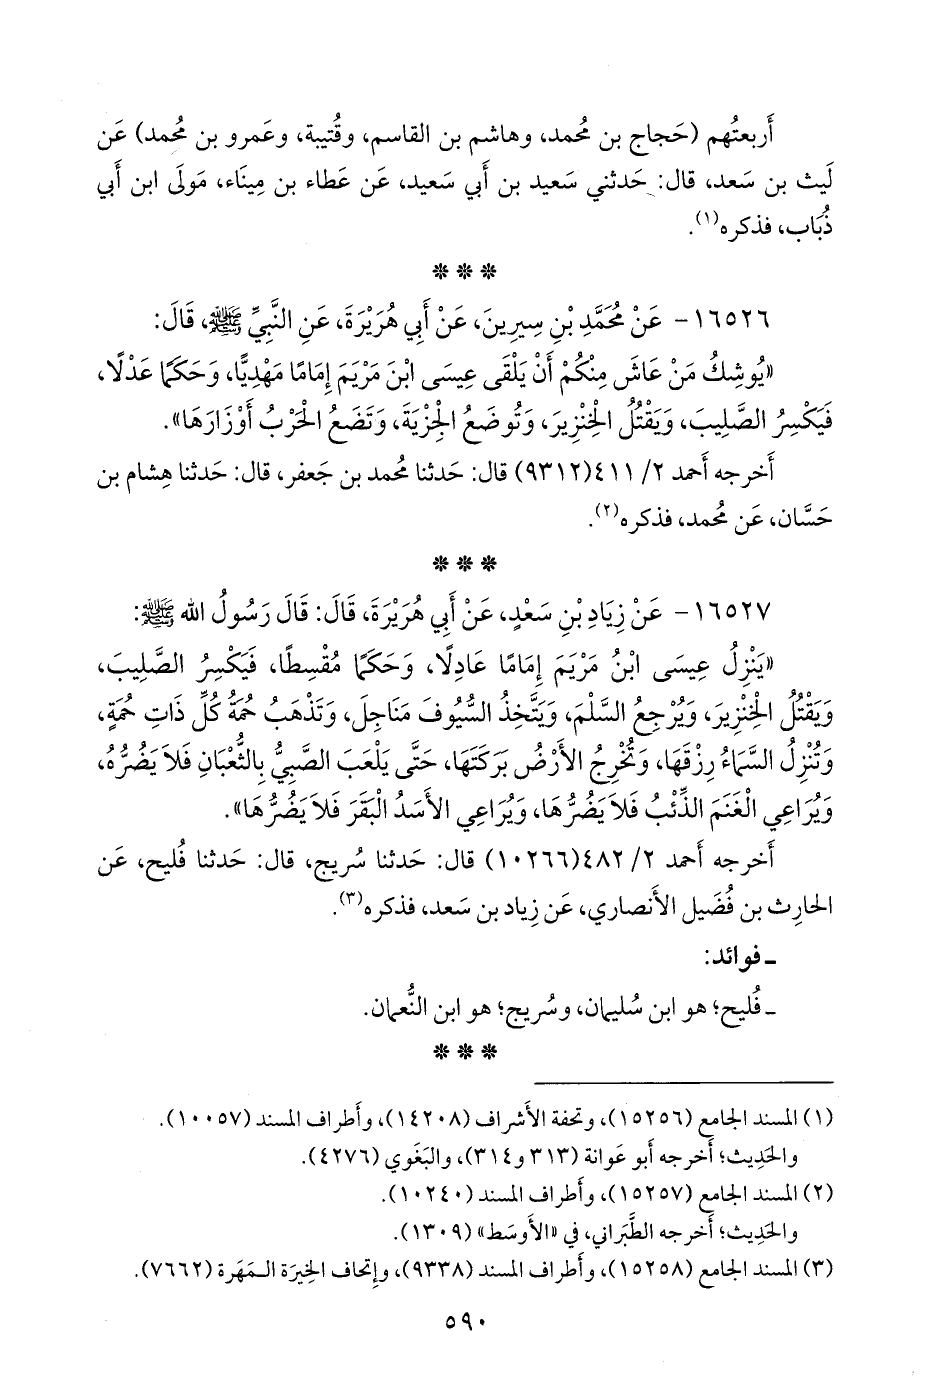 أَربعتُهم (حَجاج بن مُحمد، وهاشم بن القاسم، وقُتيبة، وعَمرو بن مُحمد) عَن
لَيث بن سَعد، قال: حَدثني سَعيد بن أَبي سَعيد، عَن عَطاء بن مِيناء، مَولَى ابن أَبي
ذُبَاب، فذكره(١).
* * *
١٦٥٢٦- عَنْ مُحَمَّدِ بْنِ سِيرِينَ، عَنْ أَبِي هُرَيْرَةَ، عَنِ النَّبِيِّ ﷺ، قَالَ:
«يُوشِكُ مَنْ عَاشَ مِنْكُمْ أَنْ يَلْقَى عِيسَى ابْنَ مَرْيَمَ إِمَامًا مَهْدِيًّا، وَحَكَمًا عَدْلًا،
فَيَكْسِرُ الصَّلِيبَ، وَيَقْتُلُ الْخِنْزِيرَ، وَتُوضَعُ الْجِزْيَةَ، وَتَضَعُ الْحَرْبُ أَوْزَارَهَا».
أَخرجه أَحمد ٢/ ٤١١(٩٣١٢) قال: حَدثنا مُحمد بن جَعفر، قال: حَدثنا هِشام بن
حَسَّان، عَن مُحمد، فذكره(٢).
* * *
١٦٥٢٧- عَنْ زِيَادِ بْنِ سَعْدٍ، عَنْ أَبِي هُرَيْرَةَ، قَالَ: قَالَ رَسُولُ الله ﷺ:
«يَنْزِلُ عِيسَى ابْنُ مَرْيَمَ إِمَامًا عَادِلًا، وَحَكَمًا مُقْسِطًا، فَيَكْسِرُ الصَّلِيبَ،
وَيَقْتُلُ الْخِنْزِيرَ، وَيُرْجِعُ السَّلْمَ، وَيَتَّخِذُ السُّيُوفَ مَنَاجِلَ، وَتَذْهَبُ حُمَةُ كُلِّ ذَاتِ حُمَةٍ،
وَتُنْزِلُ السَّمَاءُ رِزْقَهَا، وَتُخْرِجُ الأَرْضُ بَرَكَتَهَا، حَتَّى يَلْعَبَ الصَّبِيُّ بِالثُّعْبَانِ فَلاَ يَضُرُّهُ،
وَيُرَاعِي الْغَنَمَ الذِّئْبُ فَلاَ يَضُرُّهَا، وَيُرَاعِي الأَسَدُ الْبَقَرَ فَلاَ يَضُرُّهَا».
أَخرجه أَحمد ٢/ ٤٨٢(١٠٢٦٦) قال: حَدثنا سُريج، قال: حَدثنا فُليح، عَن
الحارِث بن فُضَيل الأَنصاري، عَن زِياد بن سَعد، فذكره(٣).
ـ فوائد:
ـ فُليح؛ هو ابن سُليمان، وسُريج؛ هو ابن النُّعمان.
* * *
(١) المسند الجامع (١٥٢٥٦)، وتحفة الأشراف (١٤٢٠٨)، وأَطراف المسند (١٠٠٥٧).
والحَدِيث؛ أَخرجه أَبو عَوانة (٣١٣ و٣١٤)، والبَغَوي (٤٢٧٦).
(٢) المسند الجامع (١٥٢٥٧)، وأَطراف المسند (١٠٢٤٠).
والحَدِيث؛ أَخرجه الطَّبَراني، في «الأَوسَط» (١٣٠٩).
(٣) المسند الجامع (١٥٢٥٨)، وأَطراف المسند (٩٣٣٨)، وإِتحاف الخِيرَة الـمَهَرة (٧٦٦٢).
٥٩٠